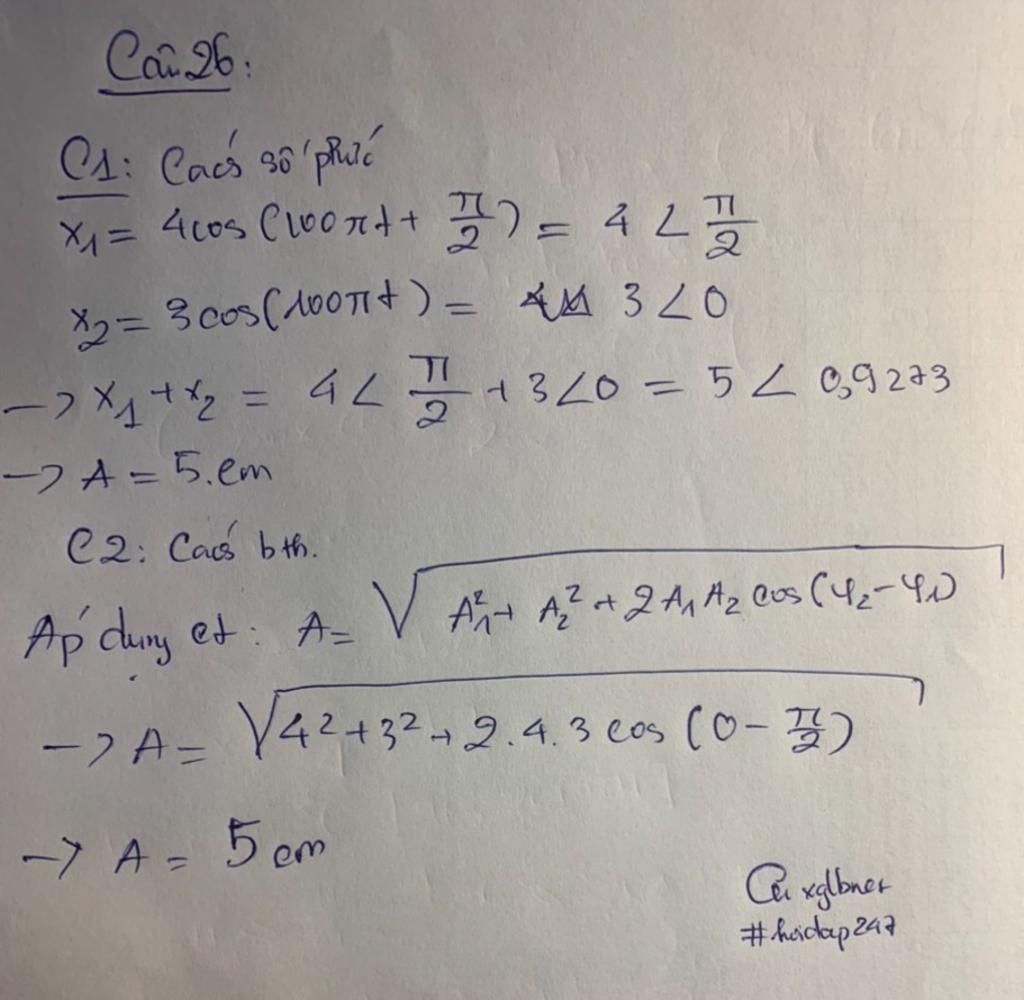 Câu 26:
C1: Cách số phức
x₁ = 4cos(100πt + π/2) = 4∠π/2
x₂ = 3cos(100πt) = 3∠0
→ x₁ + x₂ = 4∠π/2 + 3∠0 = 5∠0,9273
→ A = 5.cm
C2: Cách bth.
Áp dụng ct: A = √(A₁² + A₂² + 2A₁A₂cos(φ₂ - φ₁))
→ A = √(4² + 3² + 2.4.3cos(0 - π/2))
→ A = 5 cm
#hoidap247